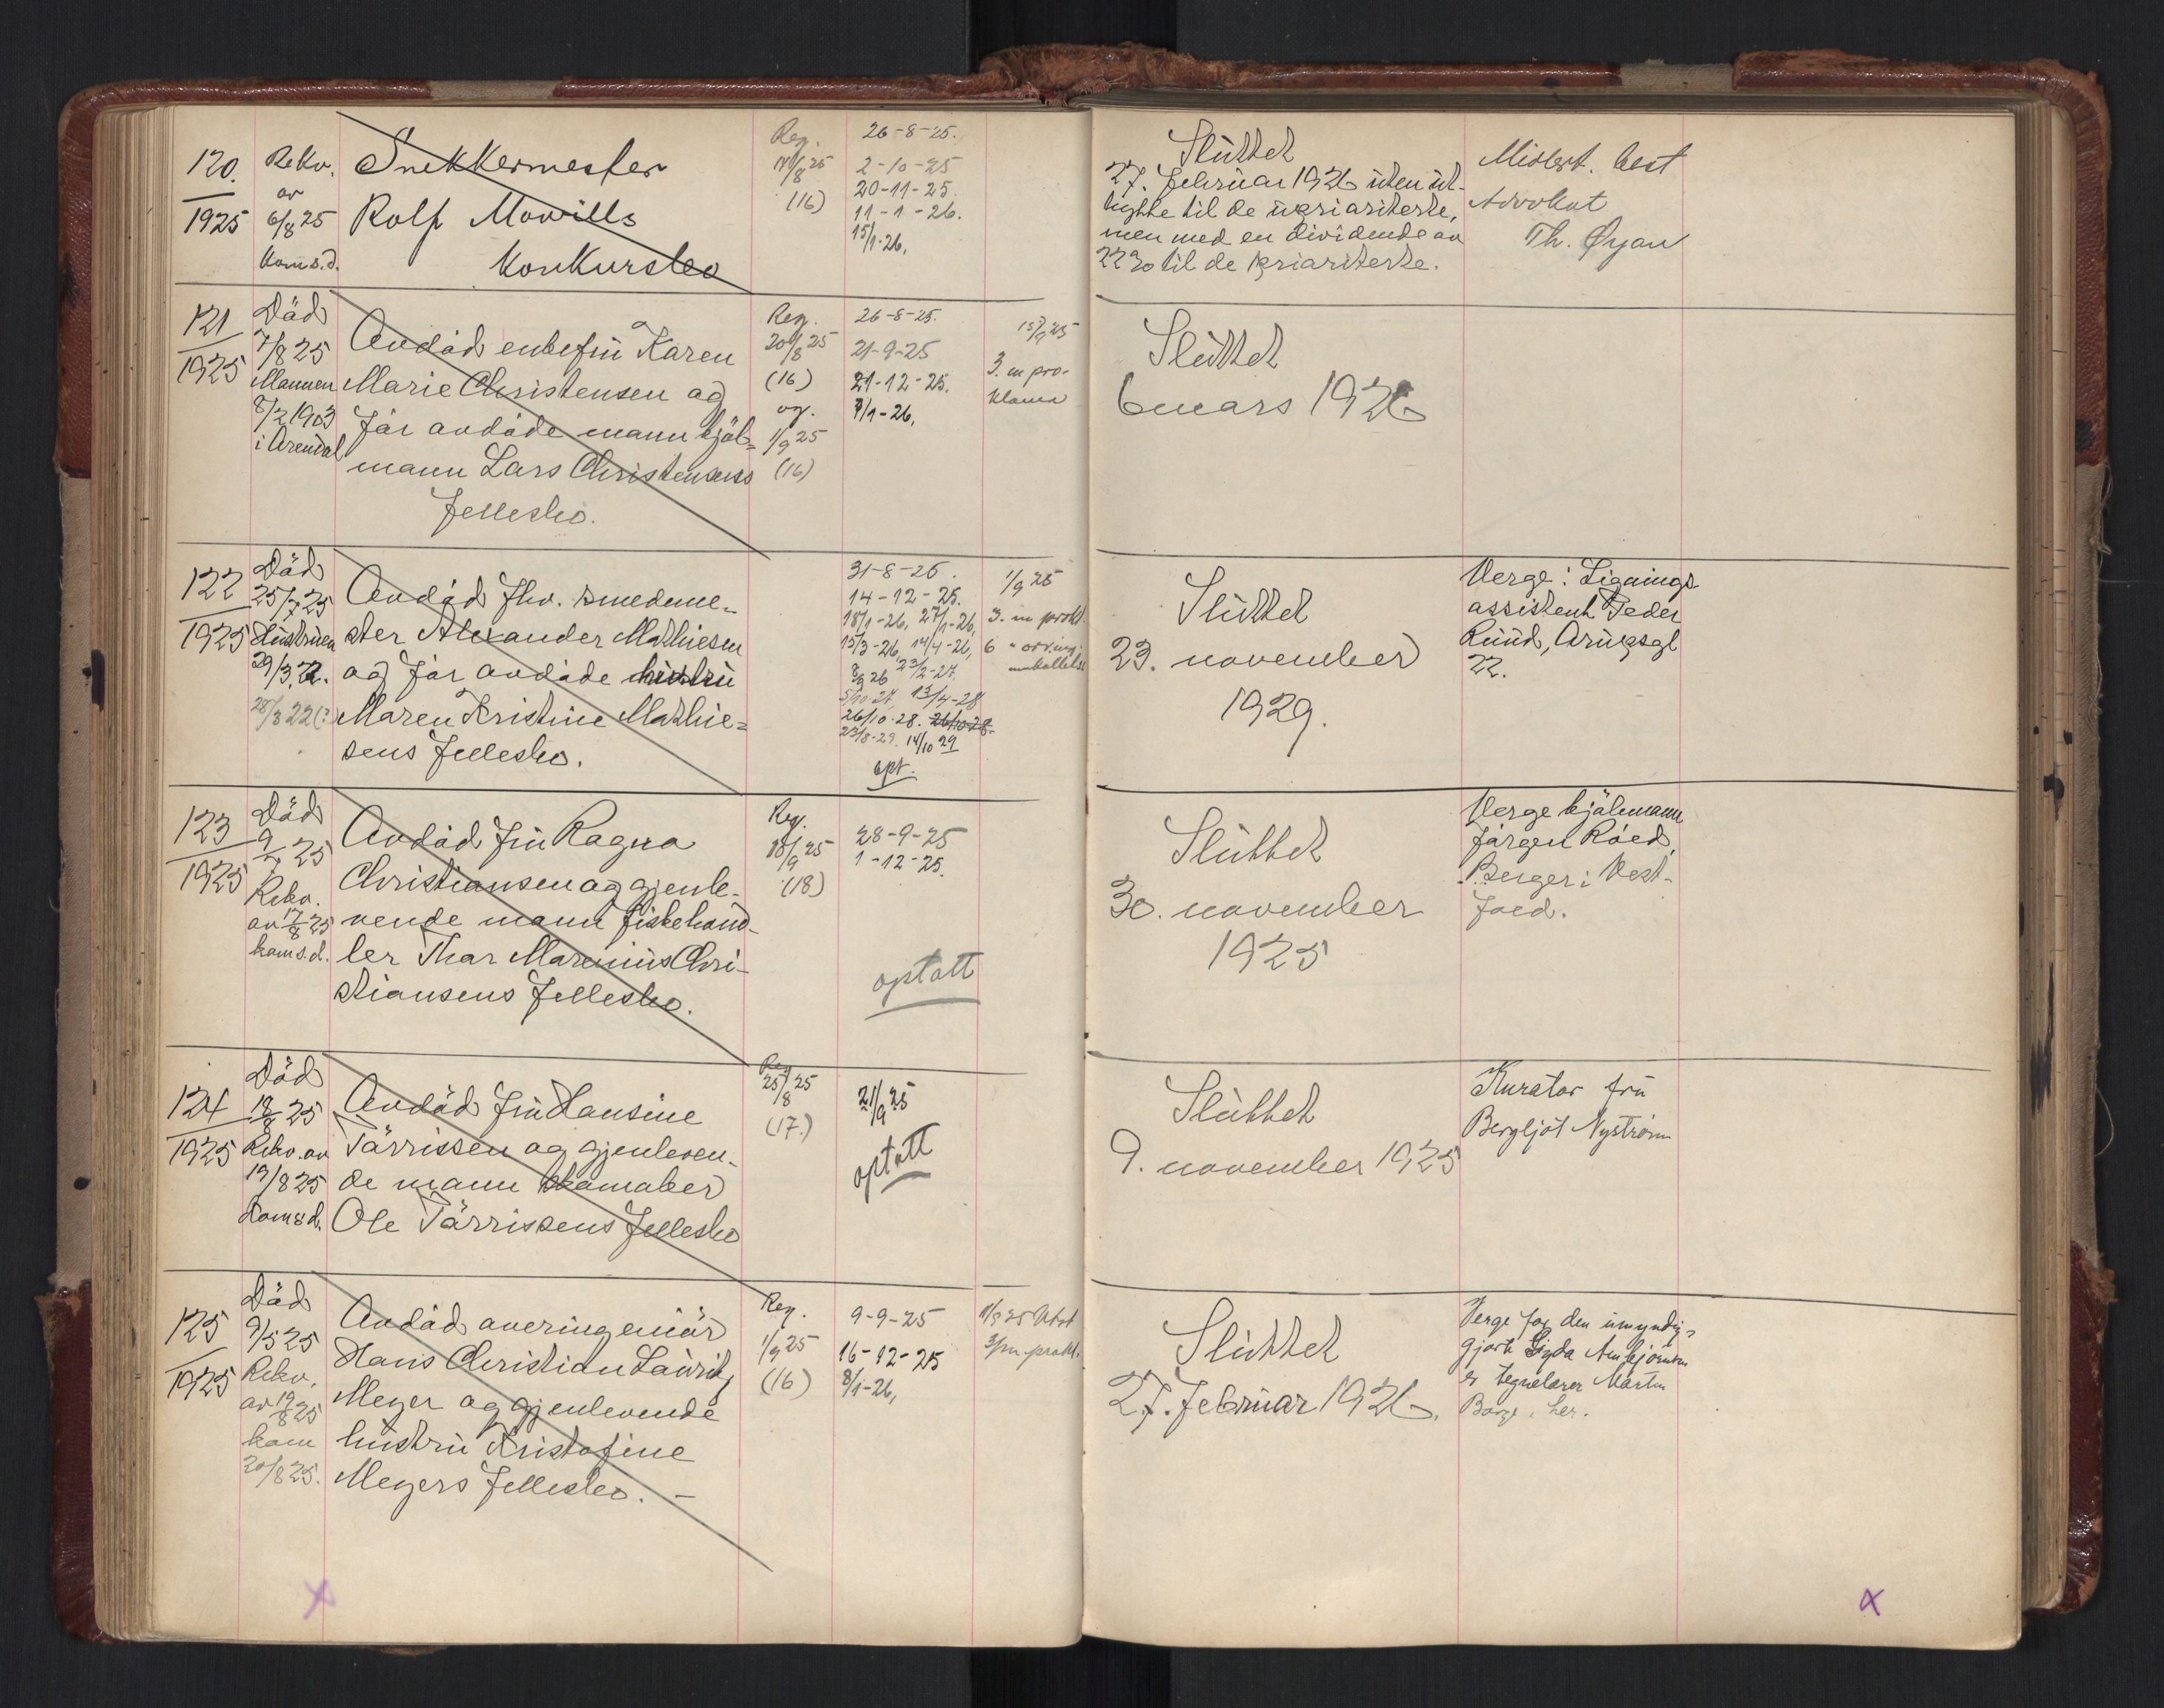 120.
1925
Rekv.
av
6/8 25
kom s.d.
Snekkermester
Rolf Mowills
konkursbo
Reg.
17/8 25
(16)
26-8-25.
2-10-25
20-11-25.
11-1-26.
15/1-26.
Sluttet
27. februar 1926 uten ut-
bytte til de uprioriterte,
men med en dividende av
22% til de prioriterte.
Midlert. best
Advokat
Th. Øyan
121
1925
Död
7/8 25
Mannen
8/2 1903
i Arendal
Avdöd enkefru Karen
Marie Christensen og
før avdöde mann kjöb-
mann Lars Christensens
fellesbo.
Reg.
20/8 25
(16)
og.
1/9 25
(16)
26-8-25.
21-9-25
21-12-25.
7/1-26.
15/9 25
3. m pro-
klama
Sluttet
6 mars 1926
122
1925
Död
25/7 25
Hustruen
29/3 22.
28/3 22(?)
Avdöd fhv. smedme-
ster Alexander Mathiesen
og før avdöde hustru
Maren Kristine Mathie-
sens fellesbo.
31-8-25.
14-12-25.
18/1-26, 27/1-26,
15/3-26, 14/4-26,
8/9 26 23/2-27.
5/10-27, 13/4-28
26/10-28. 26/10-28.
23/8-29. 14/10 29
opt.
1/9 25
3. m prokl
6 " arving-
innkallelse
Sluttet
23. november
1929.
Verge: Lignings
assistent Peder
Ruud, Arupsgt
22.
123
1925
Död
9/7 25
Rekv.
av 17/8 25
kom s.d.
Avdöd fru Ragna
Christiansen og gjenle-
vende mann fiskehand-
ler Thor Marinius Chri-
stiansens fellesbo.
Reg.
18/9 25
(18)
28-9-25
1-12-25.
optatt
Sluttet
30. november
1925
Verge kjöbmann
Jörgen Röed,
Berger i Vest-
fold.
124
1925
Död
18/8 25
Rekv. av
19/8 25
kom s.d.
Avdöd fru Hansine
Törrissen og gjenleven-
de mann skomaker
Ole Törrissens fellesbo
Reg
25/8 25
(17.)
21/9 25
optatt
Sluttet
9. november 1925
Kurator fru
Bergljot Nyström
125
1925
Död
9/5 25
Rekv.
av 19/8 25
kom
20/8 25.
Avdöd overingeniör
Hans Christian Lauritz
Meyer og gjenlevende
hustru Kristofine
Meyers fellesbo. -
Reg.
1/9 25
(16)
9-9-25
16-12-25
8/1-26,
11/9 25 Utst
3/m prokl.
Sluttet
27. februar 1926.
Verge for den umyndig-
gjorte
er Martin
Borge, her.
x
x